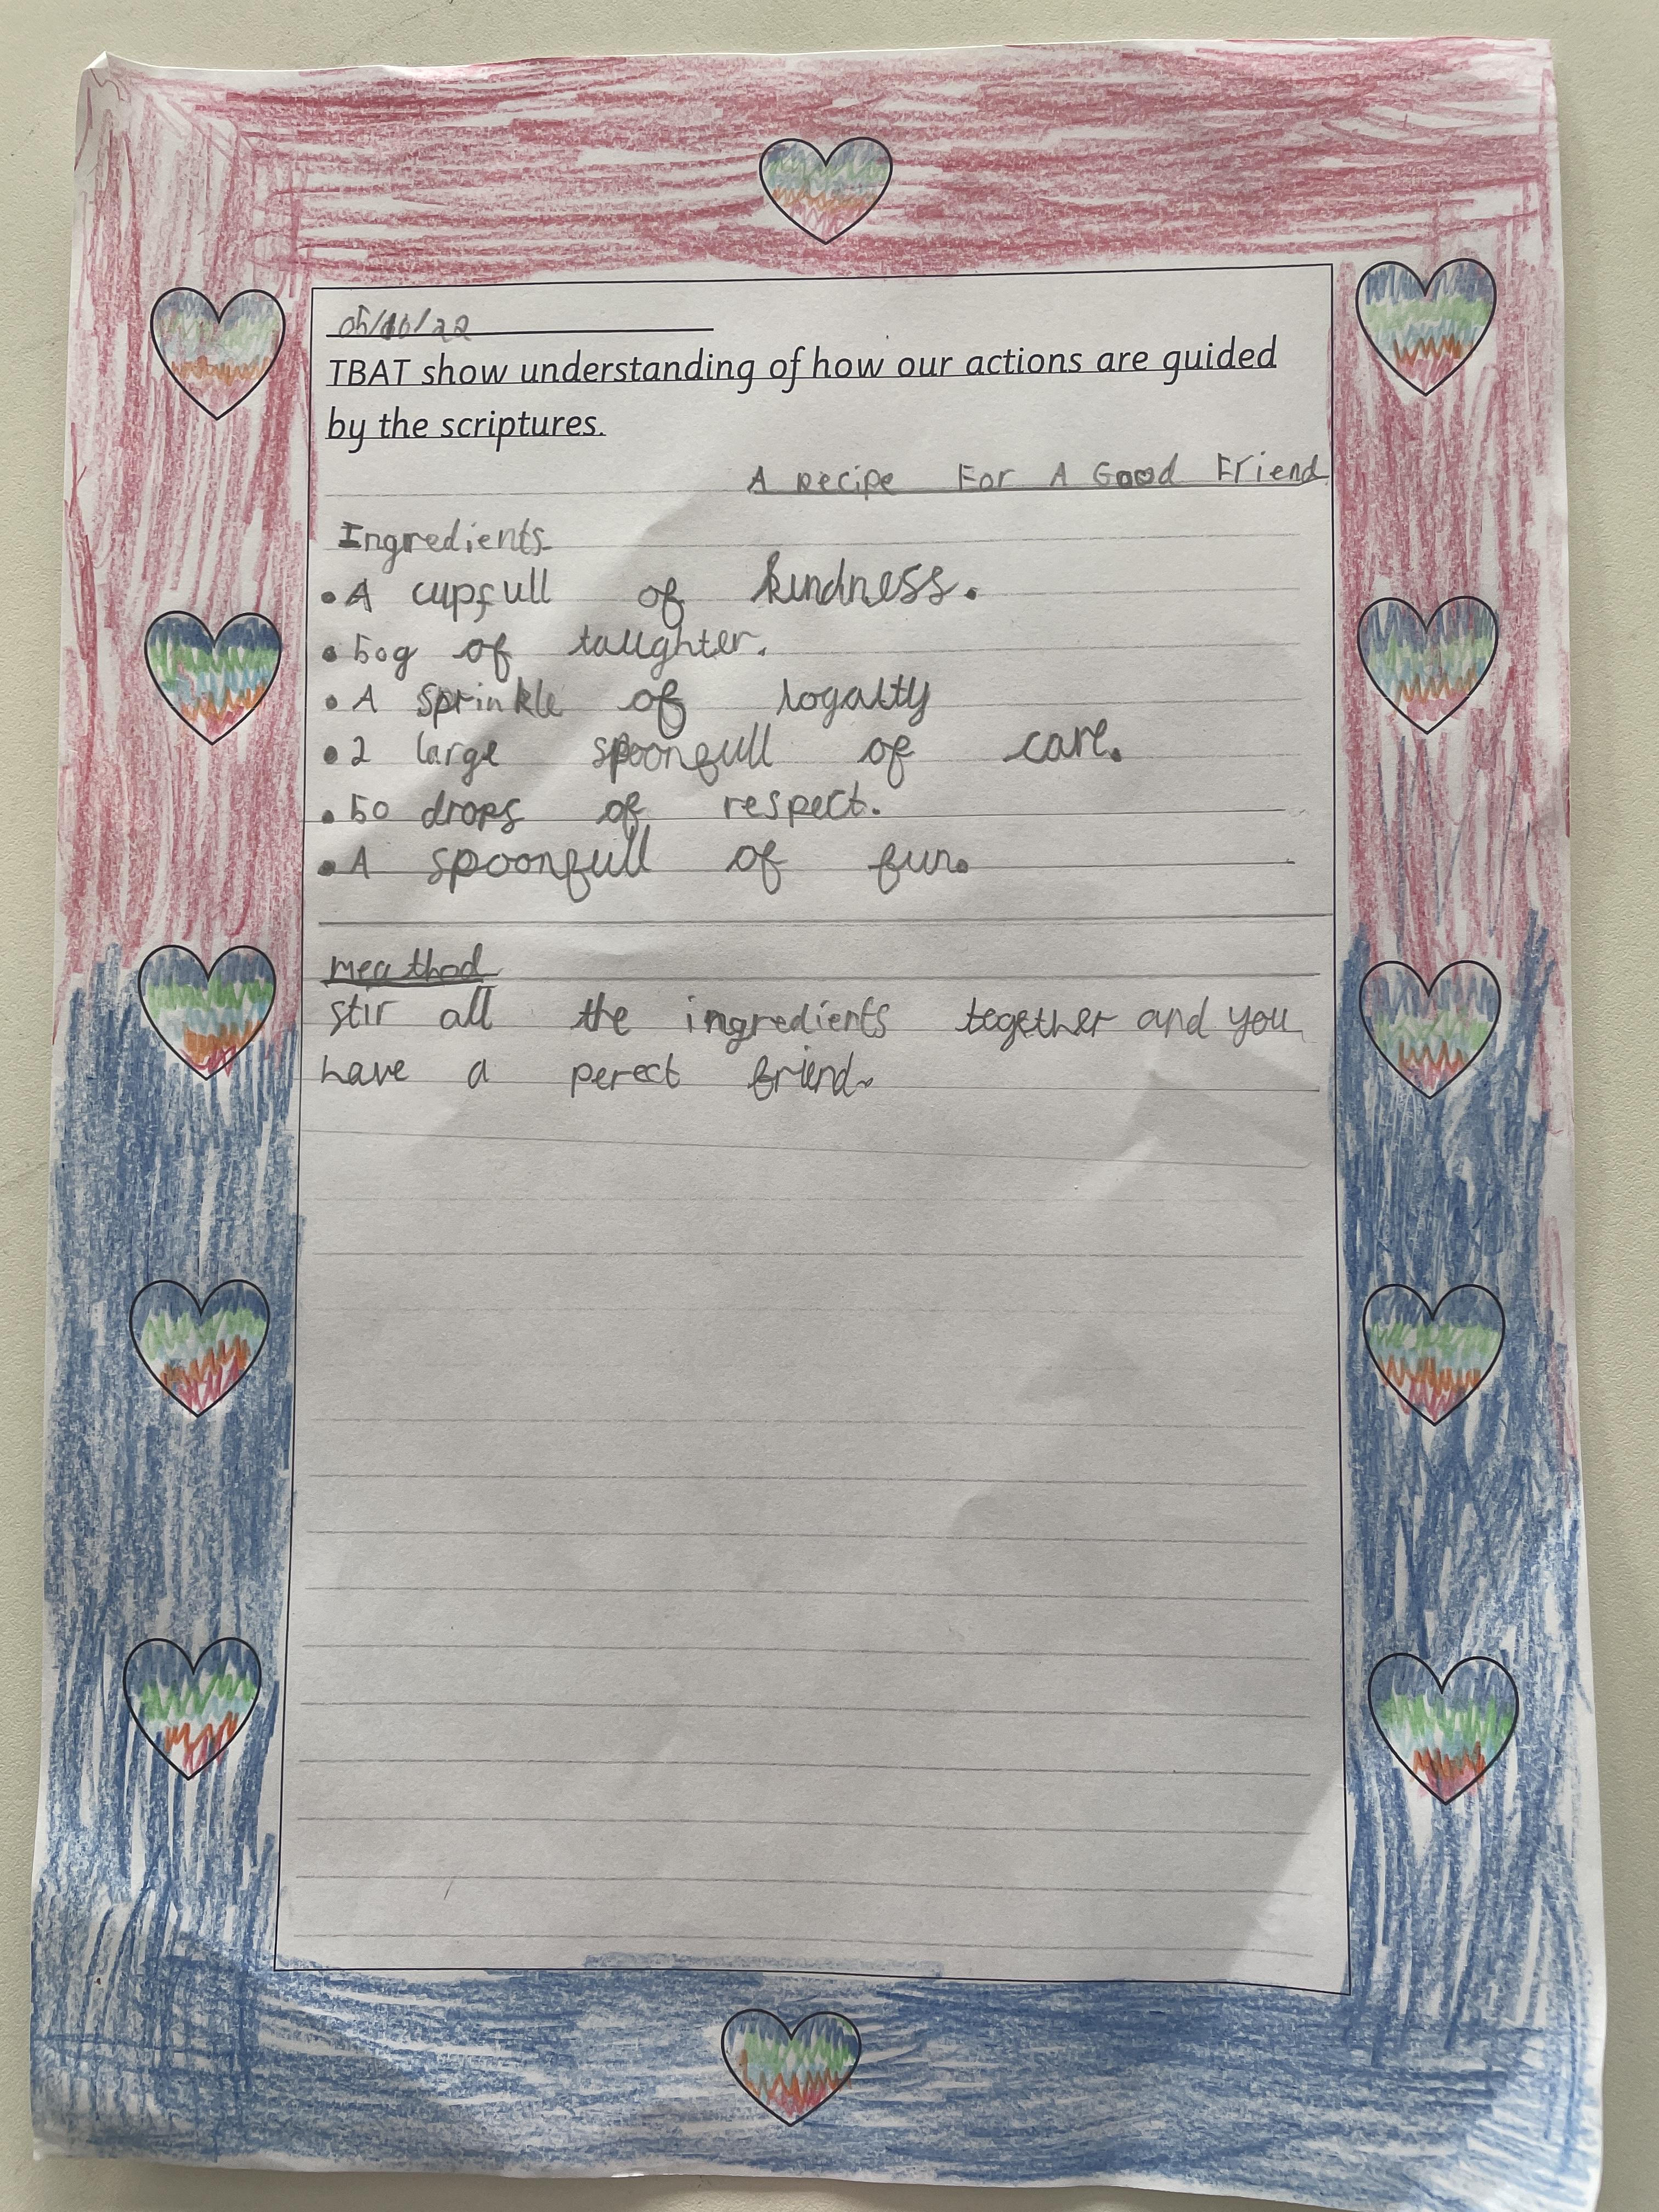 05/10/22
TBAT show understanding of how our actions are guided
by the scriptures.
A Recipe For A Good Friend
Ingredients
• A cupfull of kindness.
• 50g of laughter.
• A sprinkle of loyalty
• 2 large spoonfull of care.
• 50 drops of respect.
• A spoonfull of fun.
meathod
stir all the ingredients together and you
have a perect friend.